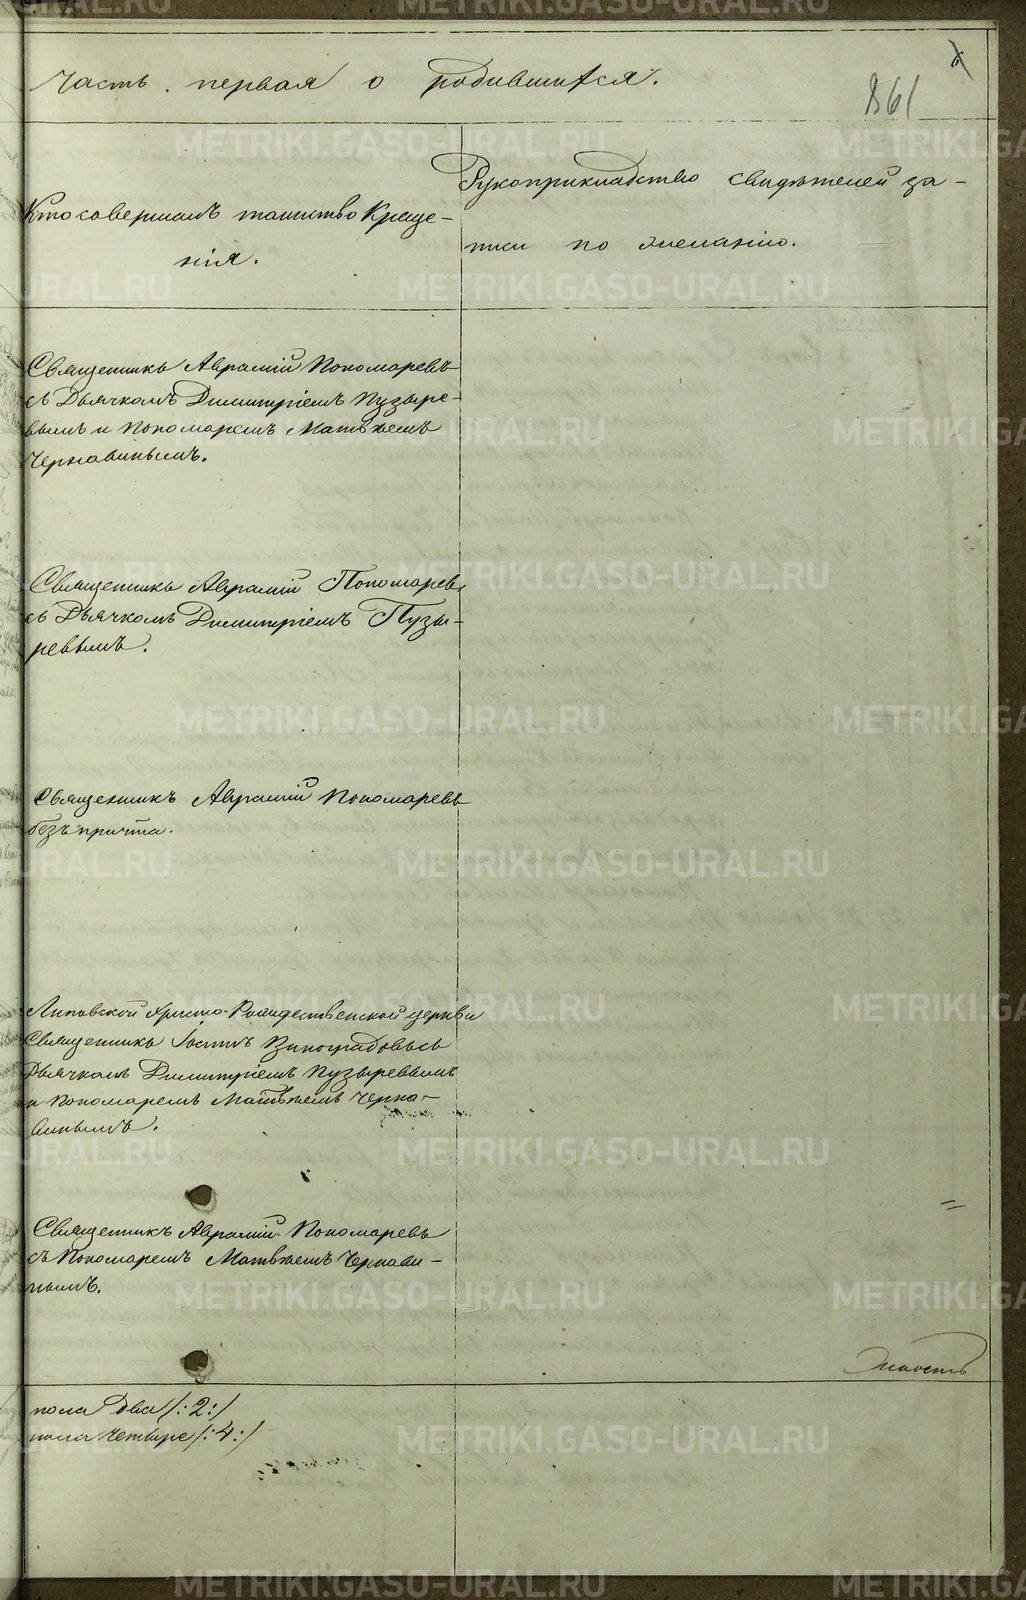 Часть первая о родившихся.
861
Кто совершалъ таинство Креще-
нія.
Рукоприкладство свидѣтелей за-
писи по желанію.
Священникъ Аврамій Пономаревъ
съ Дьячкомъ Димитріемъ Пузыре-
вымъ и Пономаремъ Матвѣемъ
Чернавинымъ.
Священникъ Аврамій Пономаревъ
съ Дьячкомъ Димитріемъ Пузы-
ревымъ.
Священникъ Аврамій Пономаревъ
безъ причта.
Липовской Христо-Рождественской церкви
Священникъ Іоаннъ Виноградовъ съ
Дьячкомъ Димитріемъ Пузыревымъ
и Пономаремъ Матвѣемъ Черна-
винымъ.
Священникъ Аврамій Пономаревъ
съ Пономаремъ Матвѣемъ Чернави-
нымъ.
пола два /:2:/
пола четыре /:4:/
METRIKI.GASO-URAL.RU